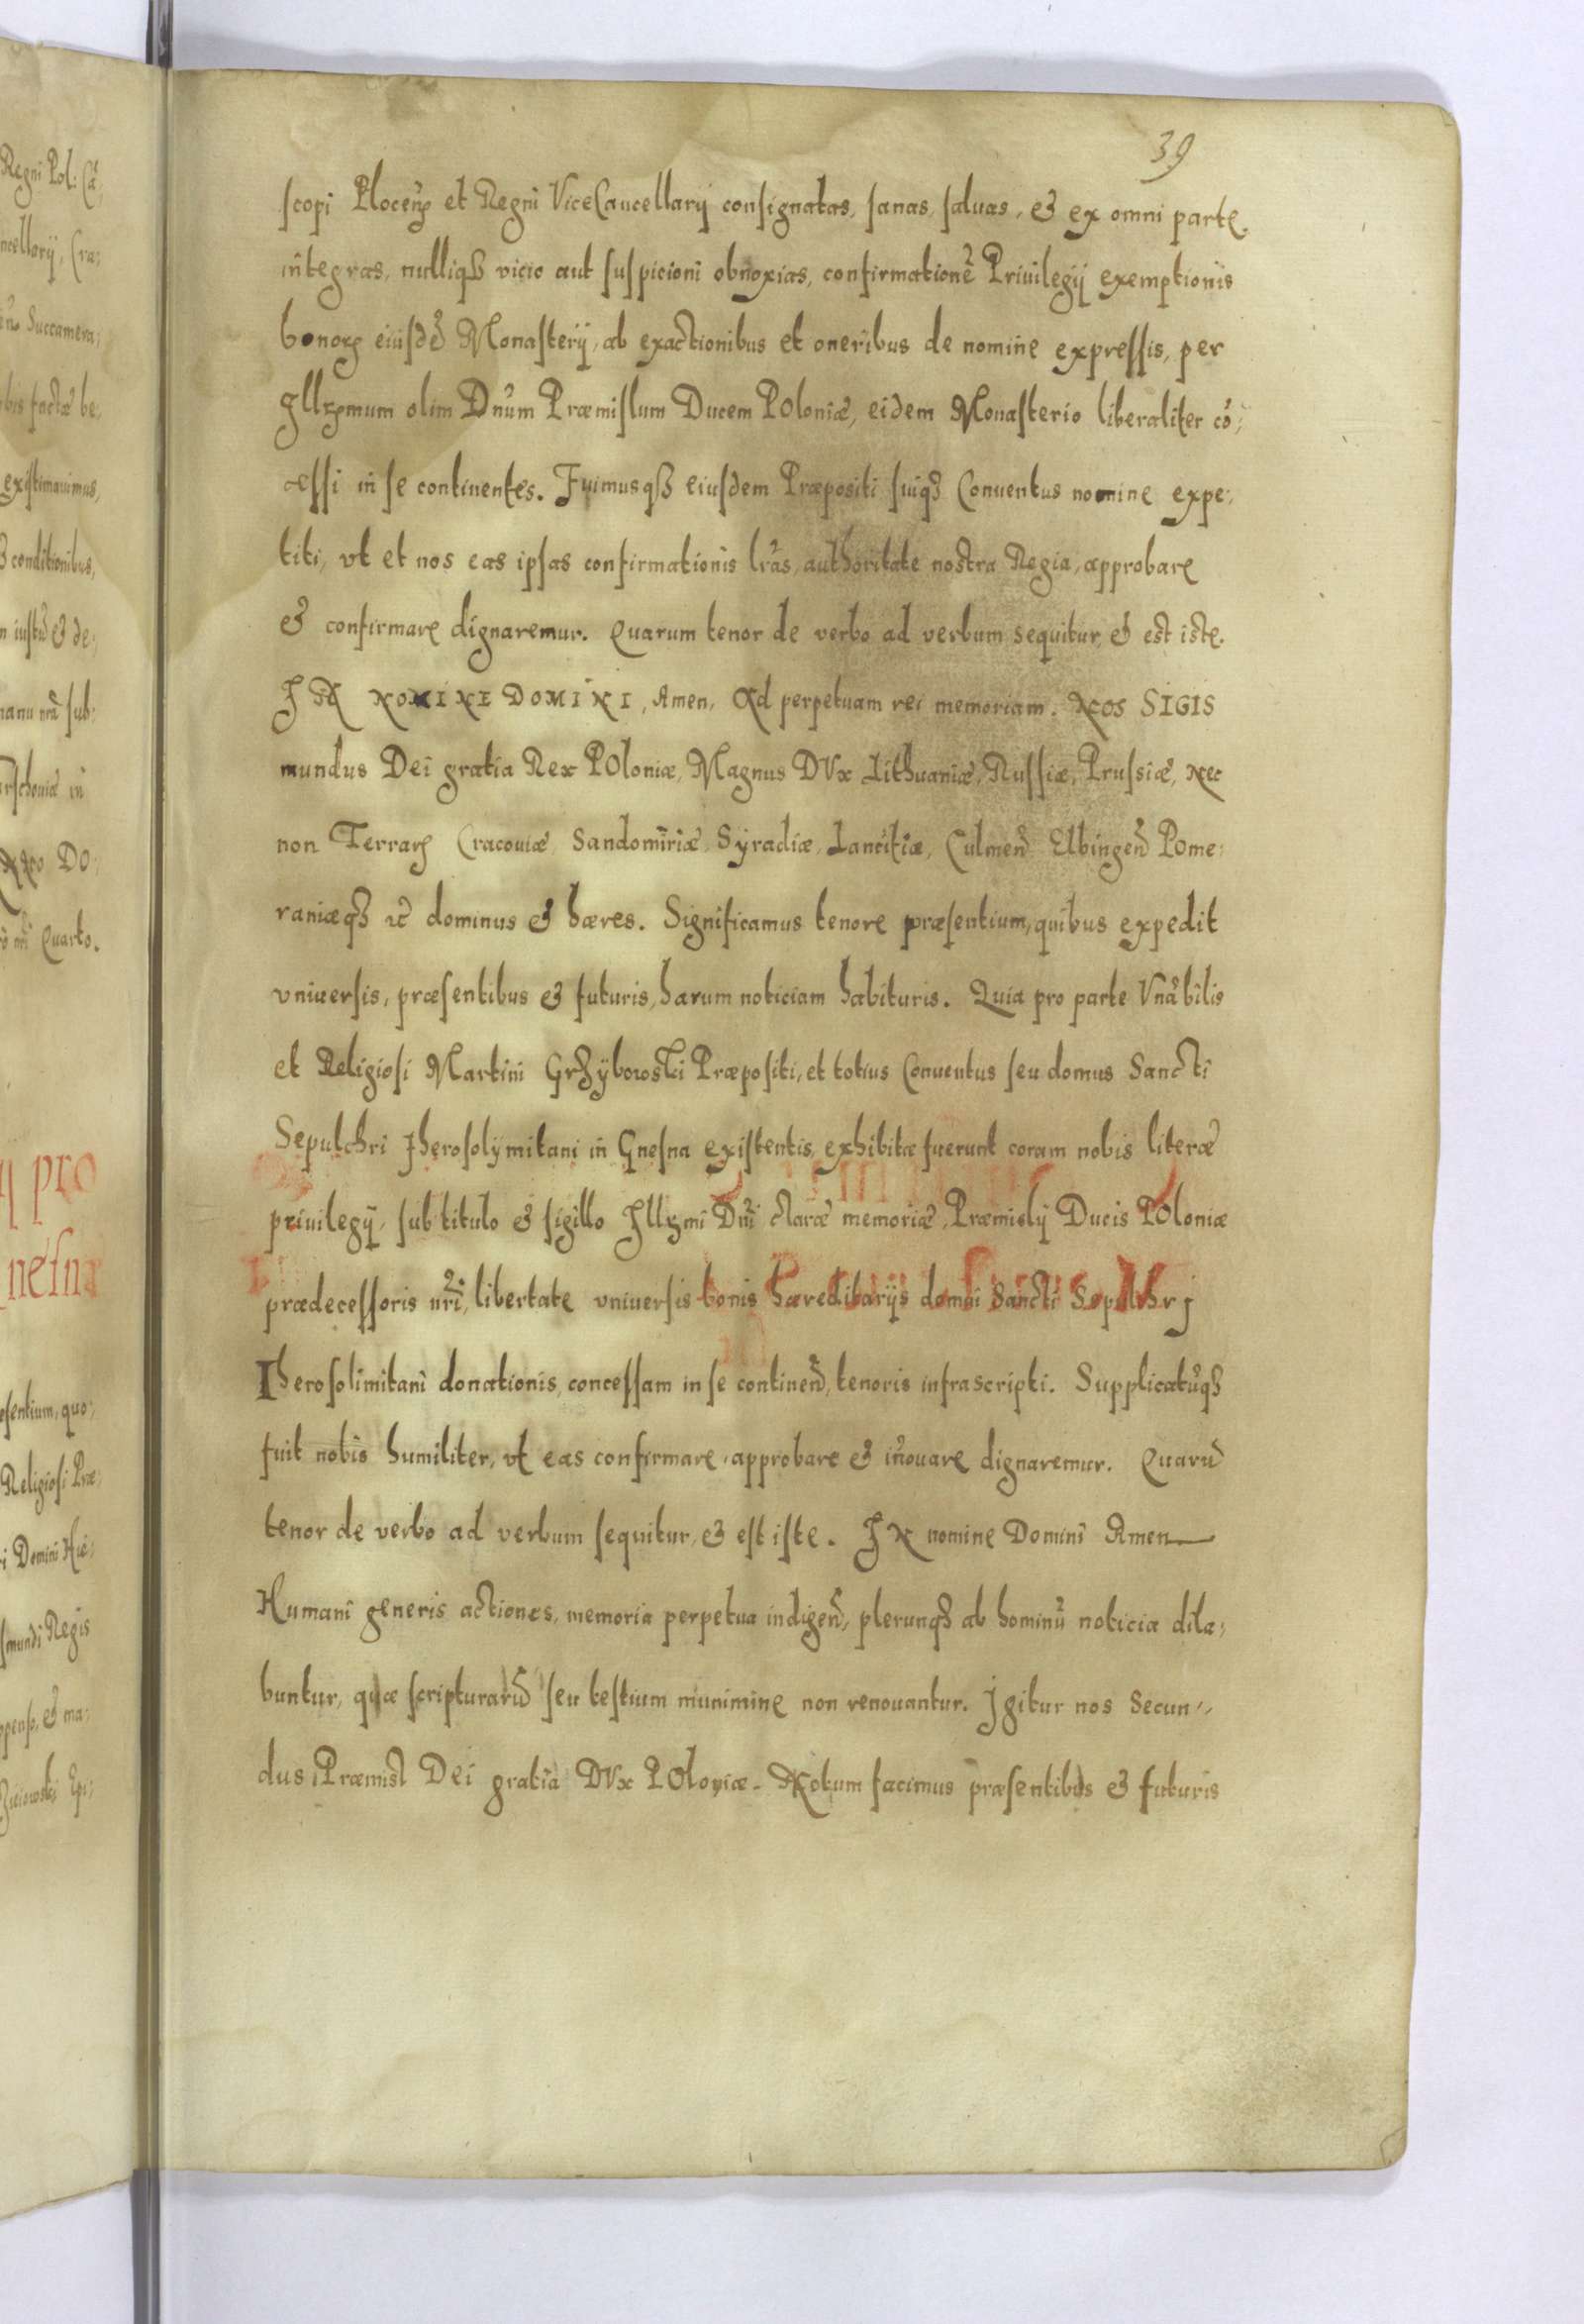 39
scopi Plocen̄ et Regni ViceCancellarij consignatas, sanas, saluas, & ex omni parte
integras, nulliqȝ vicio aut suspicioni obnoxias, confirmationē Priuilegij exemptionis
bonorꝝ eiusdē Monasterij, ab exactionibus et oneribus de nomine expressis, per
Jllꝛmum olim Dnūm Præmislum Ducem POloniæ, eidem Monasterio liberaliter cō:
cessi in se continentes. Fuimusqȝ eiusdem Præpositi suiqȝ Conuentus nomine expe:
titi, vt et nos eas ipsas confirmationis lrās, authoritate nostra Regia, approbare
& confirmare dignaremur. Quarum tenor de verbo ad verbum sequitur, & est iste.
JN NOMINE DOMINI, Amen, Ad perpetuam rei memoriam. NOS SIGIS
mundus Dei gratia Rex POloniæ, Magnus DVx Lithuaniæ, Russiæ, Prussiæ, Nec
non Terrarꝝ Cracouiæ Sandomiriæ, Syradiæ, Lancitiæ, Culmen̄ Elbingen̄ POme:
raniæqȝ ꝛc̄ dominus & hæres. Significamus tenore præsentium, quibus expedit
vniuersis, præsentibus & futuris, harum noticiam habituris. Quia pro parte Vnābilis
et Religiosi Martini Grȝybowski Præpositi, et totius Conuentus seu domus Sancti
Sepulchri Jherosolymitani in Gnesna existentis, exhibitæ fuerunt coram nobis literæ
priuilegij, sub titulo & sigillo Jllꝛmi Dnī claræ memoriæ, Præmislij Ducis POloniæ
prædecessoris nrī, libertate vniuersis bonis hæreditarijs domui Sancti Sepulchrj
Iherosolimitani donationis, concessam in se continen̄, tenoris infrascripti. Supplicatūqȝ
fuit nobis humiliter, vt eas confirmare, approbare & īnouare dignaremur. Quarū
tenor de verbo ad verbum sequitur, & est iste. JN nomine Domini Amen
Humani generis actiones, memoria perpetua indigen̄, plerunqȝ ab hominū noticia dila:
buntur, quæ scripturarū seu testium munimine non renouantur. Jgitur nos Secun:
dus Præmisl Dei gratia DVx POloniæ. Notum facimus præsentibus & futuris